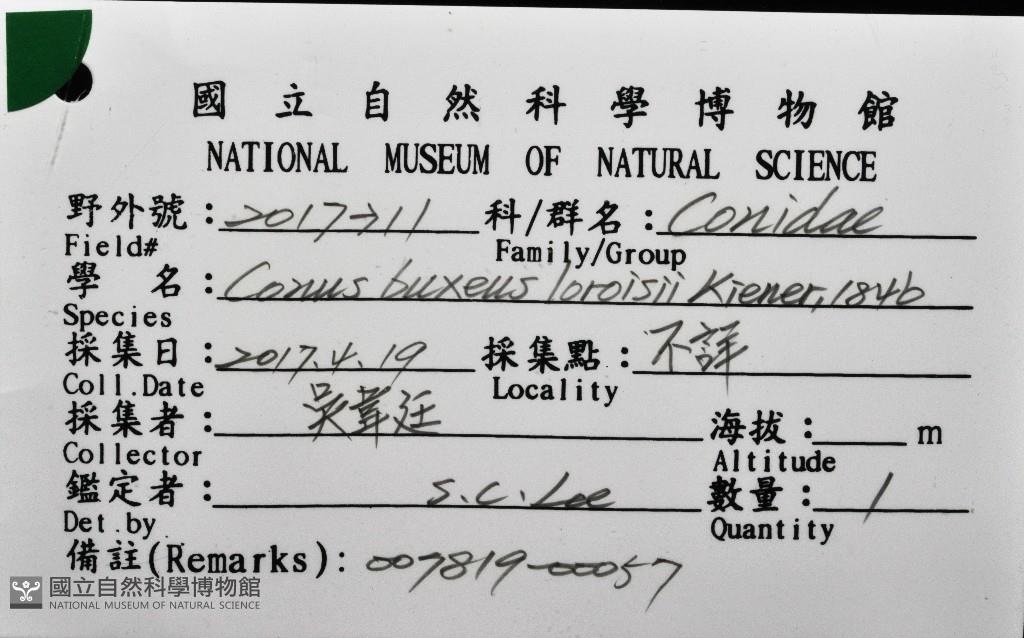 國立自然科學博物館
NATIONAL MUSEUM OF NATURAL SCIENCE
野外號：2017→11 科/群名：Conidae
Field# Family/Group
學 名：Conus buxeus loroisii Kiener, 1846
Species
採集日：2017.4.19 採集點：不詳
Coll.Date Locality
採集者：吳葦廷 海拔： m
Collector Altitude
鑑定者：S.C. Lee 數量：1
Det.by Quantity
備註(Remarks): 007819-00057
國立自然科學博物館
NATIONAL MUSEUM OF NATURAL SCIENCE